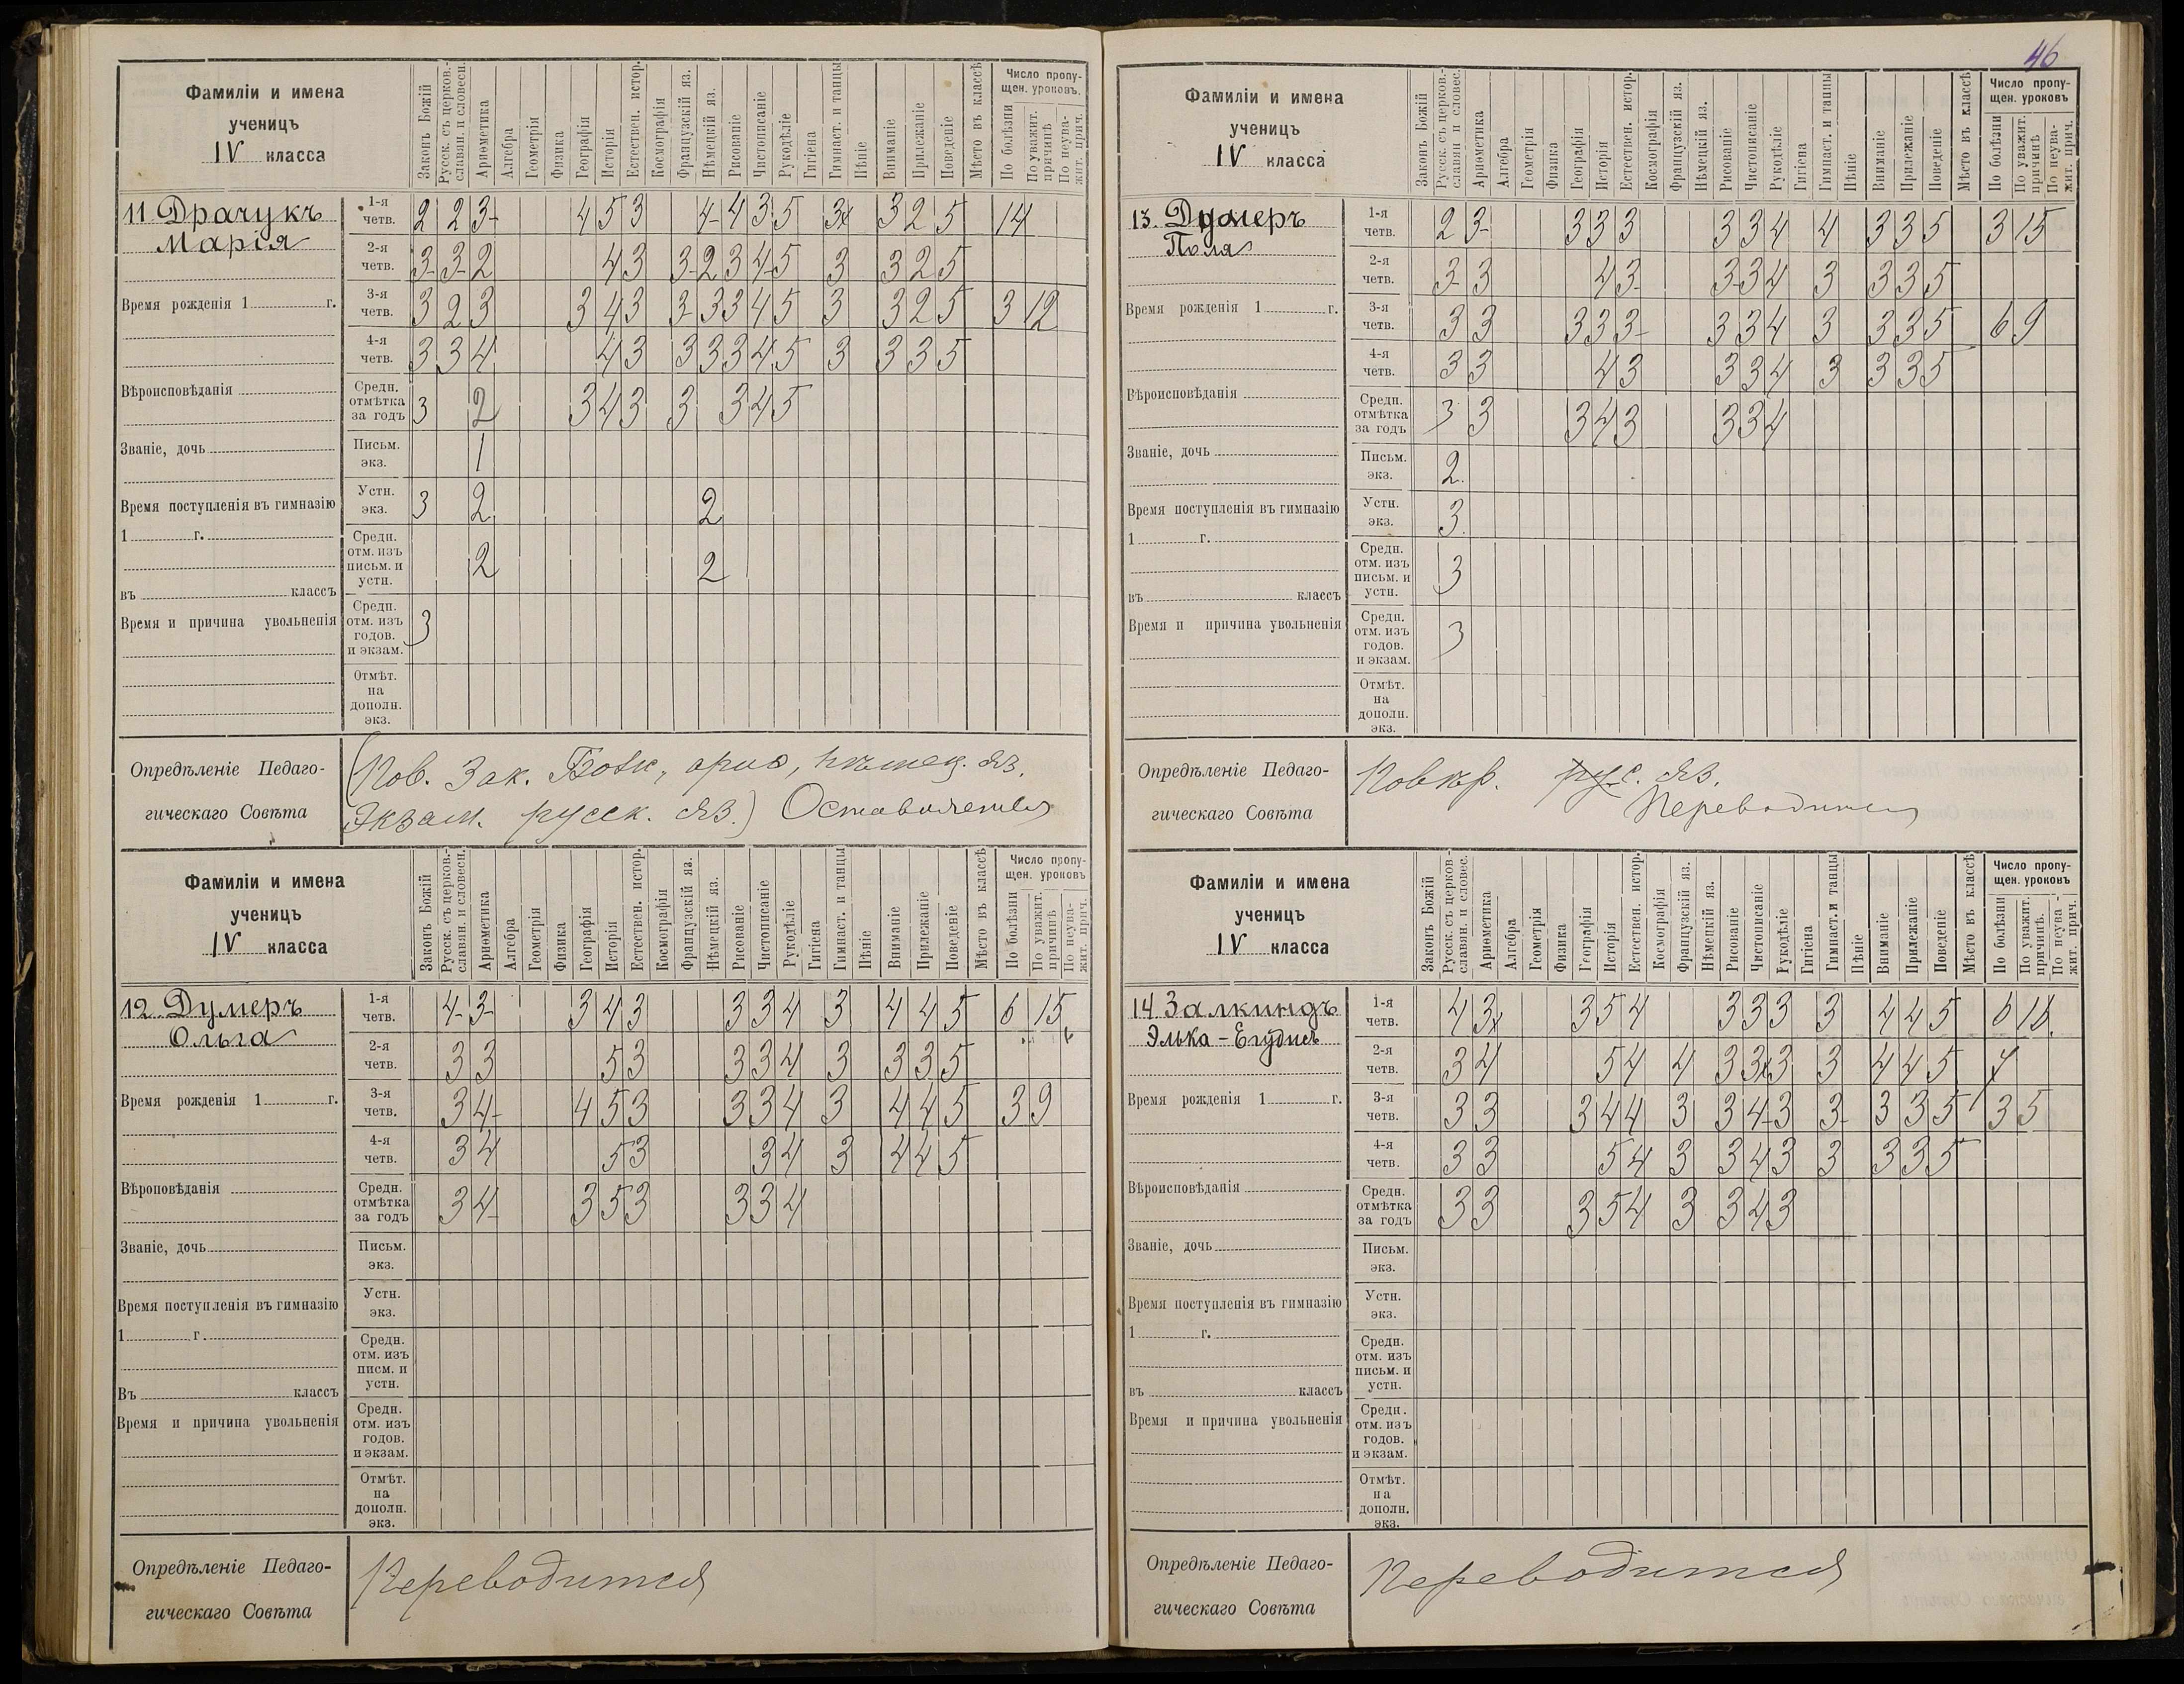 46
Фамиліи и имена
ученицъ
IV класса
Законъ Божій
Русск. съ церков.-славян. и словесн.
Ариѳметика
Алгебра
Геометрія
Физика
Географія
Исторія
Естествен. истор.
Космографія
Французскій яз.
Нѣмецкій яз.
Рисованіе
Чистописаніе
Рукодѣліе
Гигіена
Гимнаст. и танцы
Пѣніе
Вниманіе
Прилежаніе
Поведеніе
Мѣсто въ классѣ
Число пропущен. уроковъ.
По болѣзни
По уважит. причинѣ
По неуважит. прич.
11 Драчукъ
Марія
1-я четв. 2 2 3- 4 5 3 4- 4 3 5 3 3 2 5 14
2-я четв. 3- 3- 2 4 3 3- 2 3 4- 5 3 3 2 5
Время рожденія 1 г.
3-я четв. 3 2 3 3 4 3 3- 3 3 4 5 3 3 2 5 3 12
4-я четв. 3 3 4 4 3 3 3 3 4 5 3 3 3 5
Вѣроисповѣданія
Средн. отмѣтка за годъ 3 2 3 4 3 3 3 4 5
Званіе, дочь
Письм. экз. 1
Время поступленія въ гимназію
Устн. экз. 3 2 2
1 г.
Средн. отм. изъ письм. и устн. 2 2
въ классъ
Время и причина увольненія
Средн. отм. изъ годов. и экзам. 3
Отмѣт. на дополн. экз.
Опредѣленіе Педаго-
гическаго Совѣта
(Пов. Зак. Божъ, ариѳ, нѣмец. яз.
Экзам. русск. яз.) Оставляется
Фамиліи и имена
ученицъ
IV класса
Законъ Божій
Русск. съ церков.-славян. и словесн.
Ариѳметика
Алгебра
Геометрія
Физика
Географія
Исторія
Естествен. истор.
Космографія
Французскій яз.
Нѣмецкій яз.
Рисованіе
Чистописаніе
Рукодѣліе
Гигіена
Гимнаст. и танцы
Пѣніе
Вниманіе
Прилежаніе
Поведеніе
Мѣсто въ классѣ
Число пропущен. уроковъ
По болѣзни
По уважит. причинѣ
По неуважит. прич.
12 Думеръ
Ольга
1-я четв. 4- 3- 3 4 3 3 3 4 3 4 4 5 6 15
2-я четв. 3 3 5 3 3 3 4 3 3 3 5
Время рожденія 1 г.
3-я четв. 3 4- 4 5 3 3 3 4 3 4 4 5 3 9
4-я четв. 3 4 5 3 3 4 3 4 4 5
Вѣроповѣданія
Средн. отмѣтка за годъ 3 4- 3 5 3 3 3 4
Званіе, дочь
Письм. экз.
Время поступленія въ гимназію
Устн. экз.
1 г.
Средн. отм. изъ писм. и устн.
Въ классъ
Время и причина увольненія
Средн. отм. изъ годов. и экзам.
Отмѣт. на дополн. экз.
Опредѣленіе Педаго-
гическаго Совѣта
Переводится
Фамиліи и имена
ученицъ
IV класса
Законъ Божій
Русск. съ церков.-славян и словес.
Ариѳметика
Алгебра
Геометрія
Физика
Географія
Исторія
Естествен. истор.
Космографія
Французскій яз.
Нѣмецкій яз.
Рисованіе
Чистописаніе
Рукодѣліе
Гигіена
Гимнаст. и танцы
Пѣніе
Вниманіе
Прилежаніе
Поведеніе
Мѣсто въ классѣ
Число пропущен. уроковъ
По болѣзни
По уважит. причинѣ
По неуважит. прич.
13. Думеръ
Поля
1-я четв. 2 3- 3 3 3 3 3 4 4 3 3 5 3 15
2-я четв. 3- 3 4 3- 3- 3 4 3 3 3 5
Время рожденія 1 г.
3-я четв. 3 3 3 3 3- 3 3 4 3 3 3 5 6 9
4-я четв. 3 3 4 3 3 3 4 3 3 3 5
Вѣроисповѣданія
Средн. отмѣтка за годъ 3 3 3 4 3 3 3 4
Званіе, дочь
Письм. экз. 2.
Время поступленія въ гимназію
Устн. экз. 3.
1 г.
Средн. отм. изъ письм. и устн. 3
въ классъ
Время и причина увольненія
Средн. отм. изъ годов. и экзам. 3
Отмѣт. на дополн. экз.
Опредѣленіе Педаго-
гическаго Совѣта
рус. яз.
Переводится
Фамиліи и имена
ученицъ
IV класса
Законъ Божій
Русск. съ церков-славян. и словес.
Ариѳметика
Алгебра
Геометрія
Физика
Географія
Исторія
Естествен. истор.
Космографія
Французскій яз.
Нѣмецкій яз.
Рисованіе
Чистописаніе
Рукодѣліе
Гигіена
Гимнаст. и танцы
Пѣніе
Вниманіе
Прилежаніе
Поведеніе
Мѣсто въ классѣ
Число пропущен. уроковъ
По болѣзни
По уважит. причинѣ.
По неуважит. прич.
14 Залкиндъ
Элька - Егудись
1-я четв. 4 3 3 5 4 3 3 3 3 4 4 5 6 18.
2-я четв. 3 4 5 4 4 3 3 3 3 4 4 5
Время рожденія 1 г.
3-я четв. 3 3 3 4 4 3 3 4- 3 3- 3 3 5 3 5
4-я четв. 3 3 5 4 3 3 4 3 3 3 3 5
Вѣроисповѣданія
Средн. отмѣтка за годъ 3 3 3 5 4 3 3 4 3
Званіе, дочь
Письм. экз.
Время поступленія въ гимназію
Устн. экз.
1 г.
Средн. отм. изъ письм. и устн.
въ классъ
Время и причина увольненія
Средн. отм. изъ годов. и экзам.
Отмѣт. на дополн. экз.
Опредѣленіе Педаго-
гическаго Совѣта
Переводится